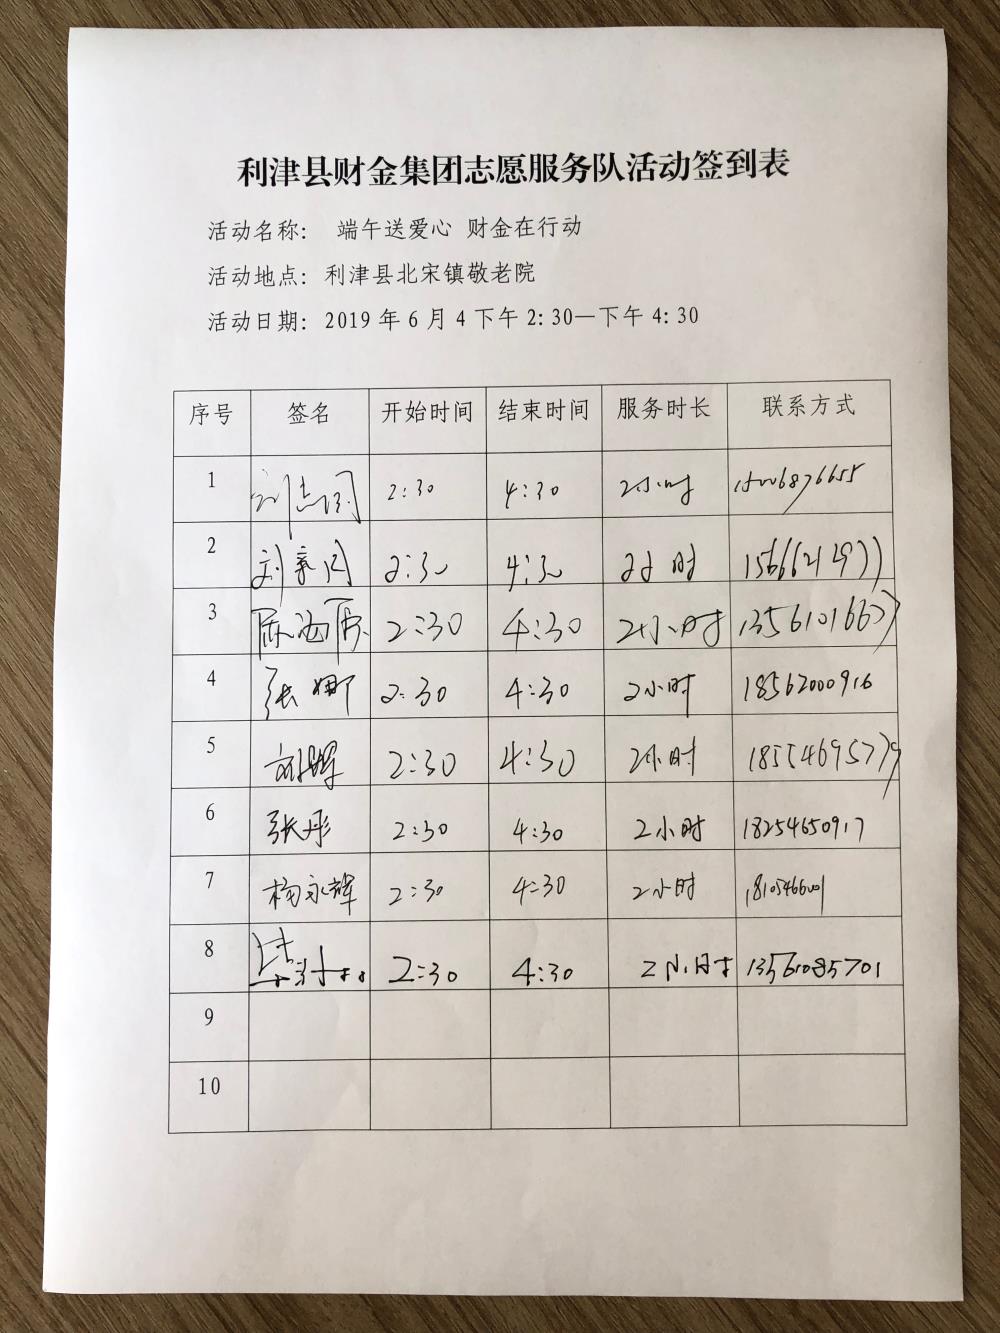 利津县财金集团志愿服务队活动签到表
活动名称： 端午送爱心 财金在行动
活动地点：利津县北宋镇敬老院
活动日期：2019 年 6 月 4 下午 2:30—下午 4:30
序号 签名 开始时间 结束时间 服务时长 联系方式
1 2:30 4:30 2小时 15006876655
2 2:30 4:30 2小时
3 2:30 4:30 2小时
4 张娜 2:30 4:30 2小时 18562000916
5 2:30 4:30 2小时
6 张彤 2:30 4:30 2小时 18254650917
7 杨永辉 2:30 4:30 2小时
8 2:30 4:30 2小时 13561085701
9
10